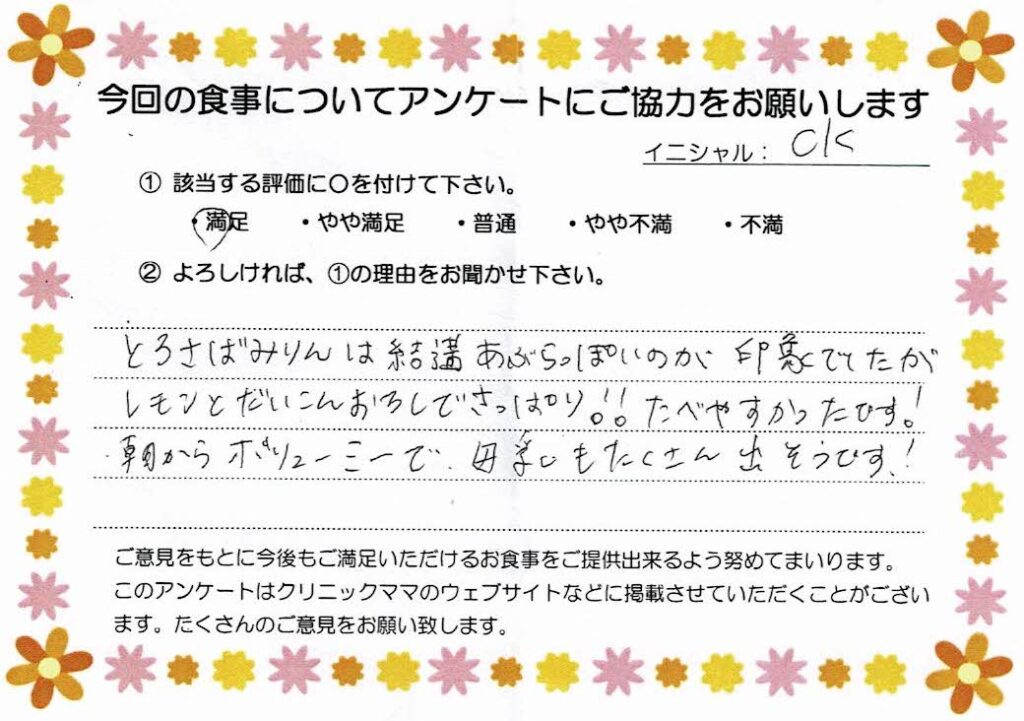 今回の食事についてアンケートにご協力をお願いします
イニシャル： CK
① 該当する評価に○を付けて下さい。
・満足 ・やや満足 ・普通 ・やや不満 ・不満
② よろしければ、①の理由をお聞かせ下さい。
とろさばみりんは結構あぶらっぽいのが印象でしたが
レモンとだいこんおろしでさっぱり!! たべやすかったです!
朝からボリューミーで、母乳もたくさん出そうです!
ご意見をもとに今後もご満足いただけるお食事をご提供出来るよう努めてまいります。
このアンケートはクリニックママのウェブサイトなどに掲載させていただくことがござい
ます。たくさんのご意見をお願い致します。